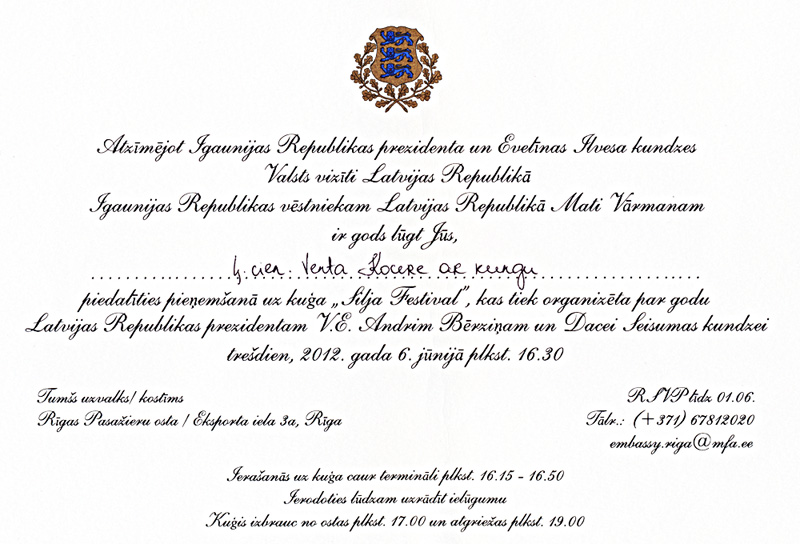 Atzīmējot Igaunijas Republikas prezidenta un Evelīnas Ilvesa kundzes
Valsts vizīti Latvijas Republikā
Igaunijas Republikas vēstniekam Latvijas Republikā Mati Vārmanam
ir gods lūgt Jūs,
ļ. cien. Venta Kocere ar kungu
piedalīties pieņemšanā uz kuģa „Silja Festival”, kas tiek organizēta par godu
Latvijas Republikas prezidentam V.E. Andrim Bērziņam un Dacei Seisumas kundzei
trešdien, 2012. gada 6. jūnijā plkst. 16.30
Tumšs uzvalks/ kostīms
Rīgas Pasažieru osta / Eksporta iela 3a, Rīga
RSVP līdz 01.06.
Tālr.: (+371) 67812020
embassy.riga@mfa.ee
Ierašanās uz kuģa caur termināli plkst. 16.15 - 16.50
Ierodoties lūdzam uzrādīt ielūgumu
Kuģis izbrauc no ostas plkst. 17.00 un atgriežas plkst. 19.00